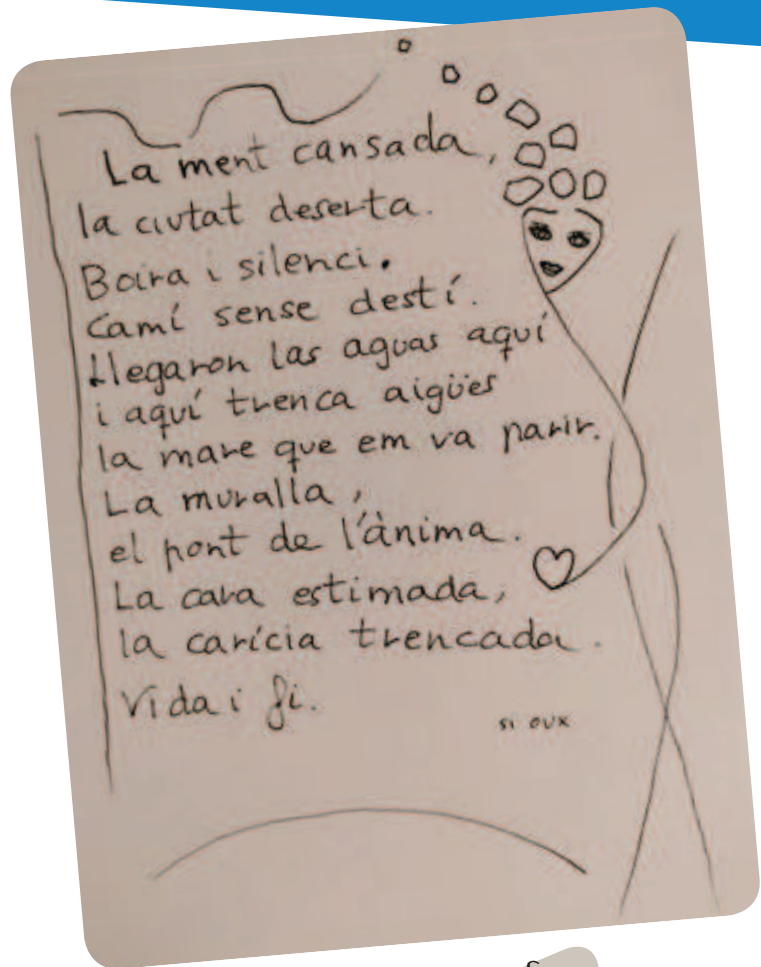 La ment cansada,
la ciutat deserta.
Boira i silenci.
Camí sense destí.
Llegaron las aguas aquí
i aquí trenca aigües
la mare que em va parir.
La muralla,
el pont de l'ànima.
La cara estimada,
la carícia trencada.
Vida i fi.
SI OUX